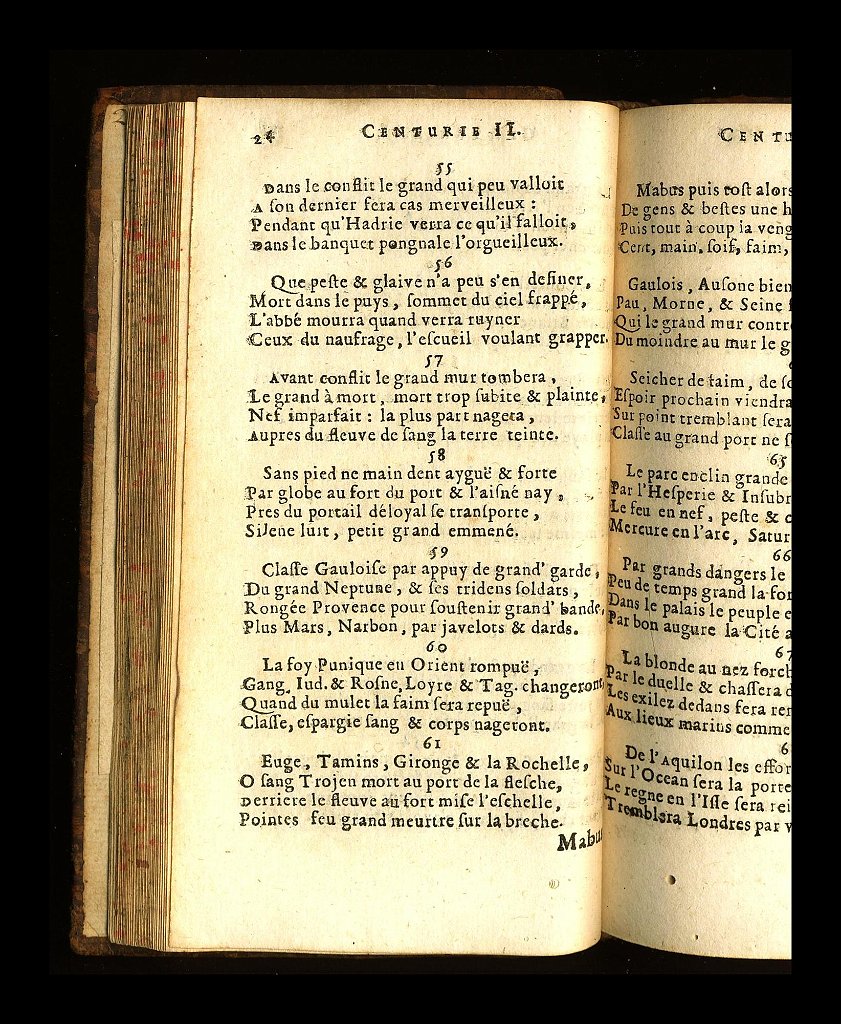 24 CENTURIE II.
55
Dans le conflit le grand qui peu valloit
A ſon dernier fera cas merveilleux :
Pendant qu'Hadrie verra ce qu'il falloit,
Dans le banquet pongnale l'orgueilleux.
56
Que peſte & glaive n'a peu s'en definer,
Mort dans le puys, ſommet du ciel frappé,
L'abbé mourra quand verra ruyner
Ceux du naufrage, l'eſcueil voulant grapper.
57
Avant conflit le grand mur tombera,
Le grand à mort, mort trop ſubite & plainte,
Nef imparfait : la plus part nagera,
Aupres du fleuve de ſang la terre teinte.
58
Sans pied ne main dent ayguë & forte
Par globe au fort du port & l'aiſné nay,
Pres du portail déloyal ſe tranſporte,
Silene luit, petit grand emmené.
59
Claſſe Gauloiſe par appuy de grand' garde,
Du grand Neptune, & ſes tridens ſoldats,
Rongée Provence pour ſouſtenir grand' bande,
Plus Mars, Narbon, par javelots & dards.
60
La foy Punique en Orient rompuë,
Gang. Iud. & Roſne, Loyre & Tag. changeront
Quand du mulet la faim ſera repuë,
Claſſe, eſpargie ſang & corps nageront.
61
Euge, Tamins, Gironge & la Rochelle,
O ſang Trojen mort au port de la fleſche,
Derriere le fleuve au fort miſe l'eſchelle,
Pointes feu grand meurtre ſur la breche.
Mabus
CENTU
Mabus puis toſt alors
De gens & beſtes une h
Puis tout à coup la veng
Cent, main, ſoif, faim,
Gaulois, Auſone bien
Pau, Morne, & Seine
Qui le grand mur contr
Du moindre au mur le g
Seicher de faim, de ſo
Eſpoir prochain viendra
Sur point tremblant ſera
Claſſe au grand port ne ſ
65
Le parc enclin grande
Par l'Heſperie & Inſubr
Le feu en nef, peſte & c
Mercure en l'arc, Satur
66
Par grands dangers le
Peu de temps grand la for
Dans le palais le peuple e
Par bon augure la Cité a
67
La blonde au nez forch
Par le duelle & chaſſera d
Les exilez dedans fera rem
Aux lieux marins comme
6
De l'Aquilon les effor
Sur l'Ocean ſera la porte
Le regne en l'Iſle ſera rei
Tremblera Londres par v